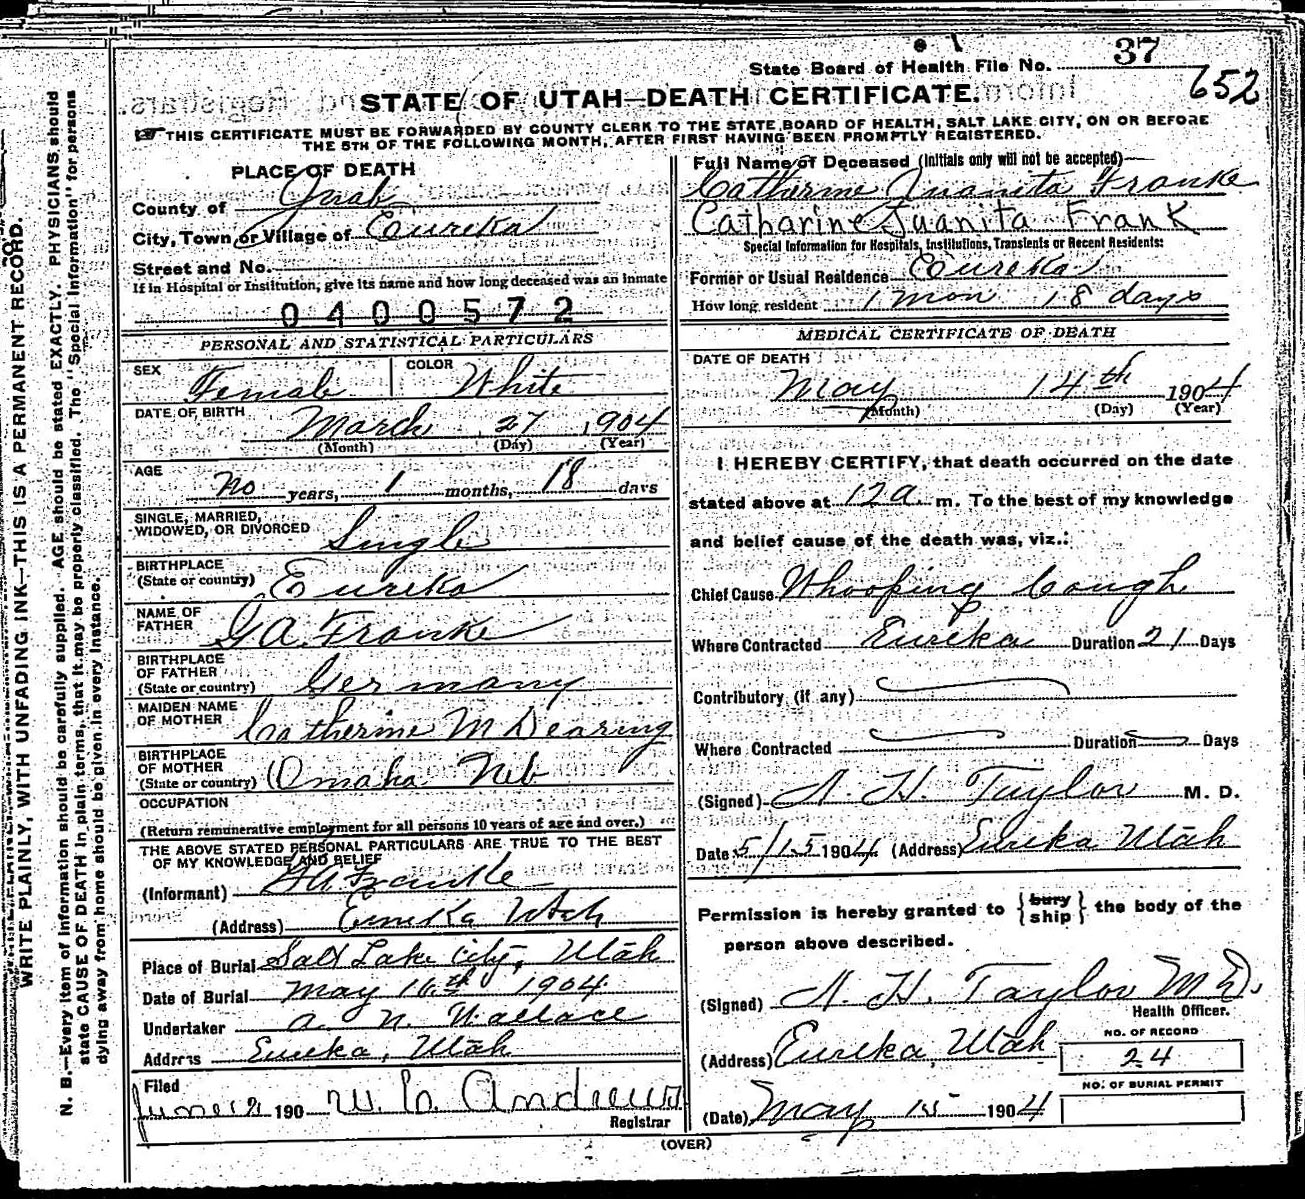 37
State Board of Health File No.
652
STATE OF UTAH—DEATH CERTIFICATE.
THIS CERTIFICATE MUST BE FORWARDED BY COUNTY CLERK TO THE STATE BOARD OF HEALTH, SALT LAKE CITY, ON OR BEFORE
THE 5TH OF THE FOLLOWING MONTH, AFTER FIRST HAVING BEEN PROMPTLY REGISTERED.
WRITE PLAINLY, WITH UNFADING INK—THIS IS A PERMANENT RECORD.
N. B.—Every item of information should be carefully supplied. AGE should be stated EXACTLY. PHYSICIANS should
state CAUSE OF DEATH in plain terms, that it may be properly classified. The "Special Information" for persons
dying away from home should be given in every instance.
PLACE OF DEATH
County of Juab
City, Town or Village of Eureka
Street and No.
If in Hospital or Institution, give its name and how long deceased was an inmate
0400572
PERSONAL AND STATISTICAL PARTICULARS
SEX Female COLOR White
DATE OF BIRTH March 27 1904
(Month) (Day) (Year)
AGE No years, 1 months, 18 days
SINGLE, MARRIED,
WIDOWED, OR DIVORCED Single
BIRTHPLACE
(State or country) Eureka
NAME OF
FATHER G A. Franke
BIRTHPLACE
OF FATHER
(State or country) Germany
MAIDEN NAME
OF MOTHER Catherine M Dearing
BIRTHPLACE
OF MOTHER
(State or country) Omaha Neb
OCCUPATION
(Return remunerative employment for all persons 10 years of age and over.)
THE ABOVE STATED PERSONAL PARTICULARS ARE TRUE TO THE BEST
OF MY KNOWLEDGE AND BELIEF
(Informant) G A Franke
(Address) Eureka Utah
Place of Burial Salt Lake City, Utah
Date of Burial May 16th 1904
Undertaker A. N. Wallace
Address Eureka, Utah
Filed
June 190 W. C. Andrews
Registrar
Full Name of Deceased (Initials only will not be accepted)
Catherine Juanita Franke
Catharine Juanita Frank
Special Information for Hospitals, Institutions, Transients or Recent Residents:
Former or Usual Residence Eureka
How long resident 1 mon 18 days
MEDICAL CERTIFICATE OF DEATH
DATE OF DEATH
May 14th 1904
(Month) (Day) (Year)
I HEREBY CERTIFY, that death occurred on the date
stated above at 12 a. m. To the best of my knowledge
and belief cause of the death was, viz.:
Chief Cause Whooping Cough
Where Contracted Eureka Duration 21 Days
Contributory (if any)
Where Contracted Duration Days
(Signed) A. H. Taylor M. D.
Date 5/15 1904 (Address) Eureka Utah
Permission is hereby granted to {bury ship} the body of the
person above described.
(Signed) A. H. Taylor M D.
Health Officer.
(Address) Eureka, Utah
NO. OF RECORD
24
NO. OF BURIAL PERMIT
(Date) May 15 1904
(OVER)